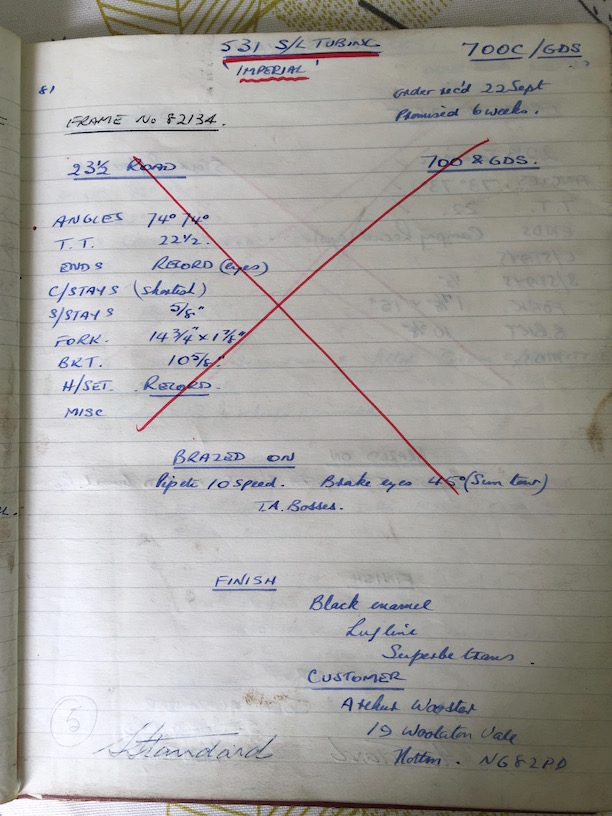 531 S/L TUBING 700C/GDS
'IMPERIAL'
81 Order rec'd 22 Sept
Promised 6 weeks.
FRAME No 82134.
23½ ROAD 700 & GDS.
ANGLES 74° 74°
T.T. 22½.
ENDS RECORD (eyes)
C/STAYS (shortish)
S/STAYS 5/8"
FORK. 14¾" x 1⅞"
BKT. 10⅝"
H/SET. RECORD.
MISC
BRAZED ON
10 speed. Brake eyes 45° (Sun tour)
T.A. Bosses.
FINISH
Black enamel
Lugline
Superbe trans.
CUSTOMER
Arthur Wooster
19 Woolaton Vale
Nottm. NG82PD
5
Standard